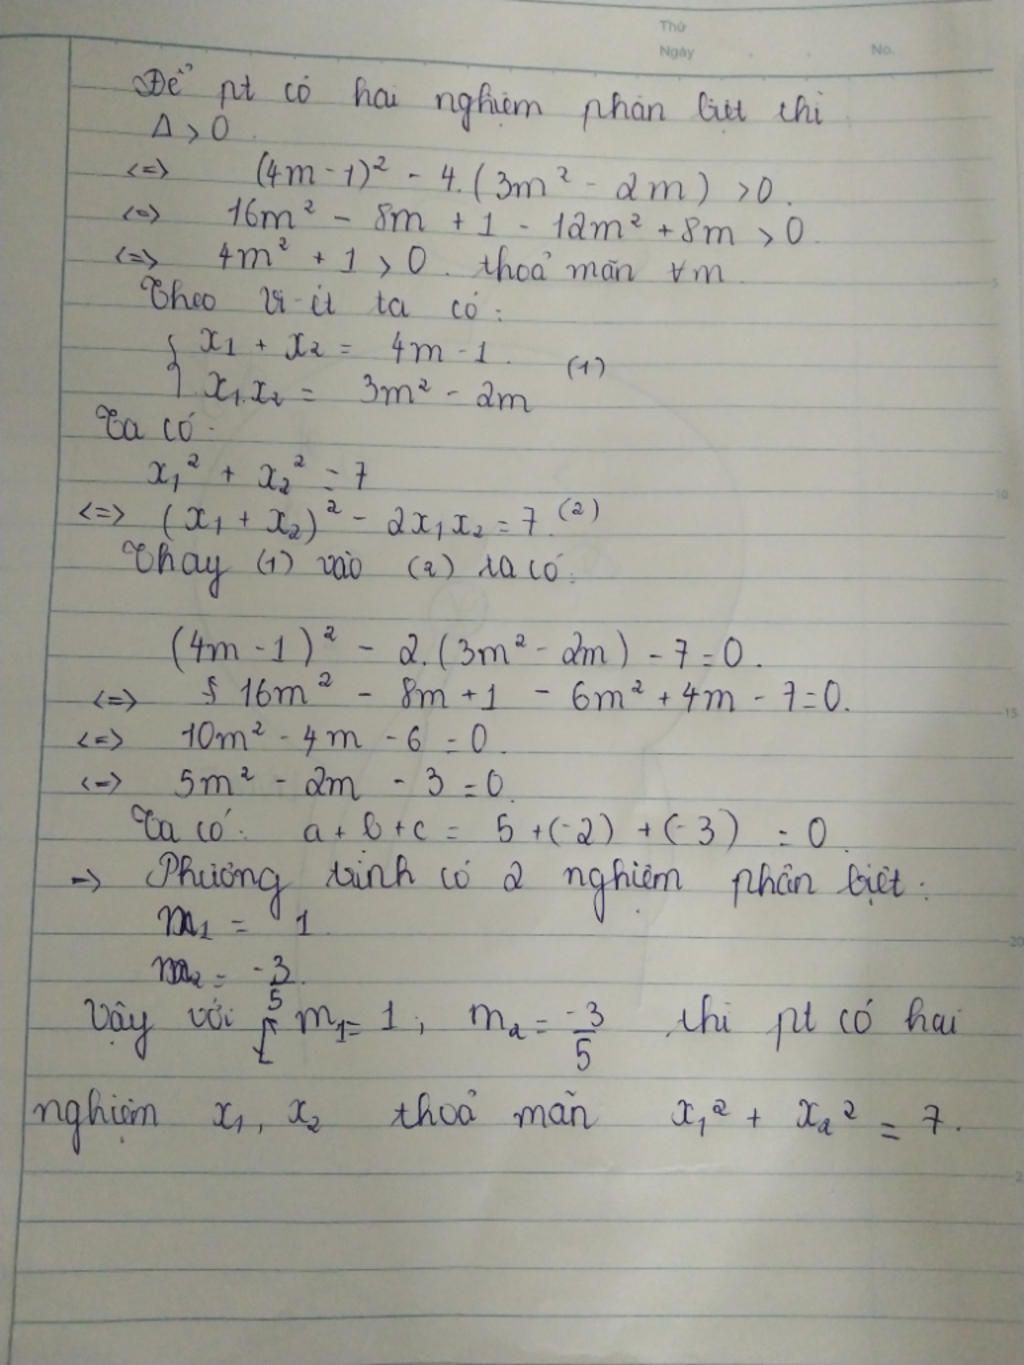 Thứ
Ngày . . No.
Để pt có hai nghiệm phân biệt thì
Δ > 0
<=> (4m-1)² - 4.(3m² - 2m) > 0.
<=> 16m² - 8m + 1 - 12m² + 8m > 0
<=> 4m² + 1 > 0. thoả mãn ∀m
Theo Vi-ét ta có:
{ x₁ + x₂ = 4m - 1.
x₁.x₂ = 3m² - 2m (1)
Ta có:
x₁² + x₂² = 7
<=> (x₁ + x₂)² - 2x₁x₂ = 7. (2)
Thay (1) vào (2) ta có:
(4m - 1)² - 2.(3m² - 2m) - 7 = 0.
<=> 16m² - 8m + 1 - 6m² + 4m - 7 = 0.
<=> 10m² - 4m - 6 = 0.
<=> 5m² - 2m - 3 = 0.
Ta có: a + b + c = 5 + (-2) + (-3) = 0
=> Phương trình có 2 nghiệm phân biệt:
m₁ = 1
m₂ = -3/5.
Vậy với m₁ = 1, m₂ = -3/5 thì pt có hai
nghiệm x₁, x₂ thoả mãn x₁² + x₂² = 7.